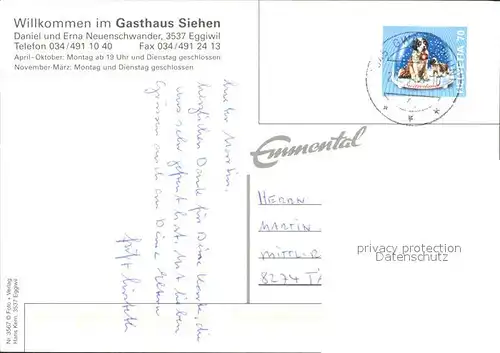 Willkommen im Gasthaus Siehen
Daniel und Erna Neuenschwander, 3537 Eggiwil
Telefon 034/491 10 40 Fax 034/491 24 13
April-Oktober: Montag ab 19 Uhr und Dienstag geschlossen
November-März: Montag und Dienstag geschlossen
HELVETIA 70
Emmental
Lieber Martin,
herzlichen Dank für Deine Karte, die
uns sehr gefreut hat. Mit lieben
Grüssen auch an Deine Eltern
HERRN
MARTIN
MITTL.
8274 TÄ
privacy protection
Datenschutz
Nr. 3567 © Foto + Verlag
Hans Kern, 3537 Eggiwil